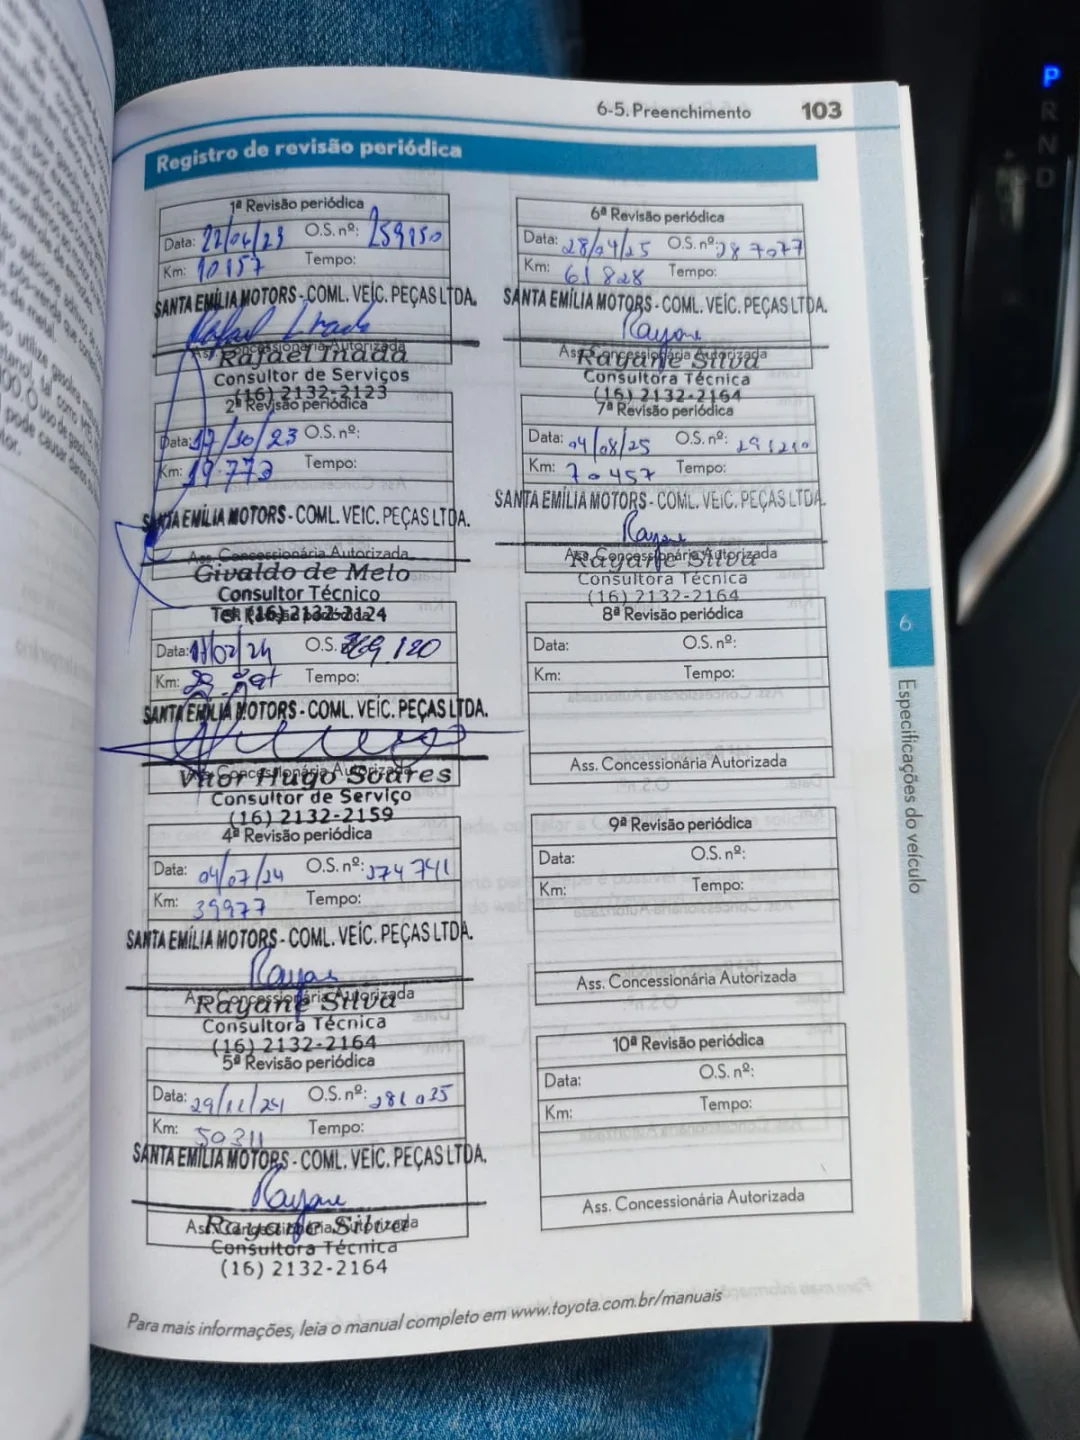 6-5. Preenchimento 103
Registro de revisão periódica
1ª Revisão periódica
Data: 22/04/23 O.S. nº: 259150
Km: 10157 Tempo:
SANTA EMÍLIA MOTORS - COML. VEÍC. PEÇAS LTDA.
Ass. Concessionária Autorizada
Rafael Inada
Consultor de Serviços
(16) 2132-2123
2ª Revisão periódica
Data: 17/10/23 O.S. nº:
Km: 19.773 Tempo:
SANTA EMÍLIA MOTORS - COML. VEÍC. PEÇAS LTDA.
Ass. Concessionária Autorizada
Givaldo de Melo
Consultor Técnico
Tel: (16) 2132-2124
Revisão periódica
Data: /02/24 O.S. 269.120
Km: Tempo:
SANTA EMÍLIA MOTORS - COML. VEÍC. PEÇAS LTDA.
Ass. Concessionária Autorizada
Vitor Hugo Soares
Consultor de Serviço
(16) 2132-2159
4ª Revisão periódica
Data: 04/07/24 O.S. nº: 274741
Km: 39977 Tempo:
SANTA EMÍLIA MOTORS - COML. VEÍC. PEÇAS LTDA.
Rayane
Ass. Concessionária Autorizada
Rayane Silva
Consultora Técnica
(16) 2132-2164
5ª Revisão periódica
Data: 29/11/24 O.S. nº: 281035
Km: 50311 Tempo:
SANTA EMÍLIA MOTORS - COML. VEÍC. PEÇAS LTDA.
Rayane
Ass. Concessionária Autorizada
Rayane Silva
Consultora Técnica
(16) 2132-2164
6ª Revisão periódica
Data: 28/04/25 O.S. nº: 287077
Km: 61828 Tempo:
SANTA EMÍLIA MOTORS - COML. VEÍC. PEÇAS LTDA.
Rayane
Ass. Concessionária Autorizada
Rayane Silva
Consultora Técnica
(16) 2132-2164
7ª Revisão periódica
Data: 04/08/25 O.S. nº: 291210
Km: 70457 Tempo:
SANTA EMÍLIA MOTORS - COML. VEÍC. PEÇAS LTDA.
Rayane
Ass. Concessionária Autorizada
Rayane Silva
Consultora Técnica
(16) 2132-2164
8ª Revisão periódica
Data: O.S. nº:
Km: Tempo:
Ass. Concessionária Autorizada
9ª Revisão periódica
Data: O.S. nº:
Km: Tempo:
Ass. Concessionária Autorizada
10ª Revisão periódica
Data: O.S. nº:
Km: Tempo:
Ass. Concessionária Autorizada
6
Especificações do veículo
Para mais informações, leia o manual completo em www.toyota.com.br/manuais
P
R
N
D